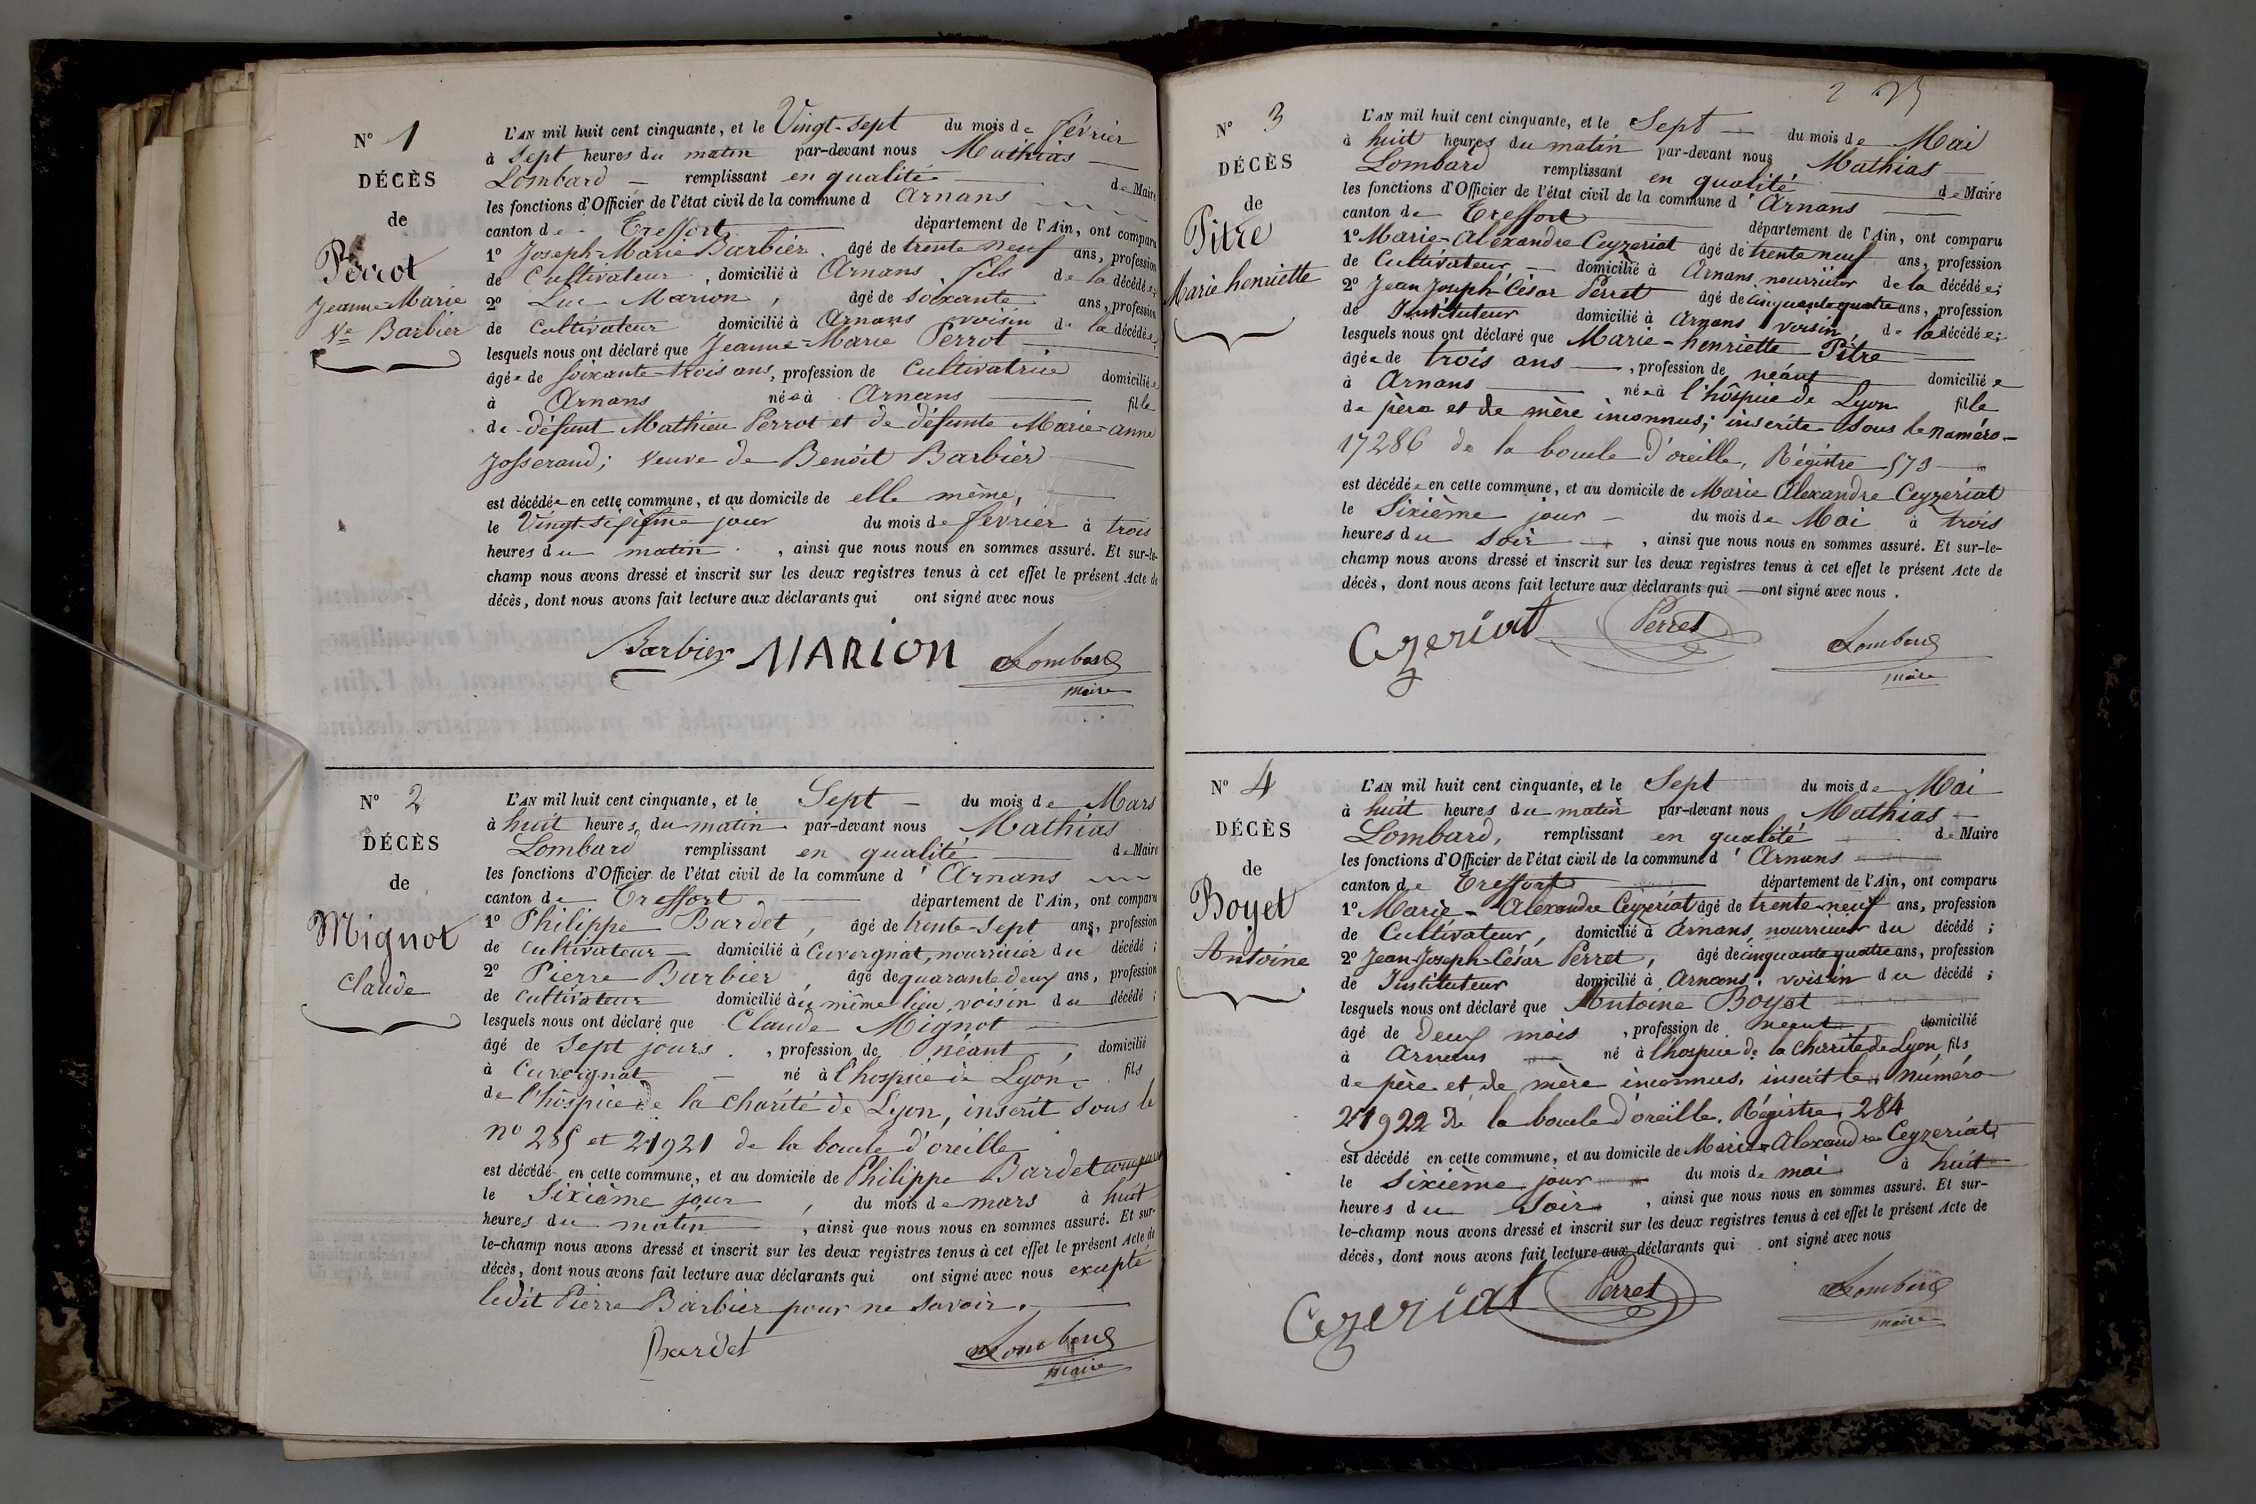 N° 1
DÉCÈS
de
Perrot
Jeanne-Marie
Ve Barbier
L'AN mil huit cent cinquante, et le Vingt-sept du mois de février
à sept heures du matin par-devant nous Mathias
Lombard remplissant en qualité de Maire
les fonctions d'Officier de l'état civil de la commune d Arnans
canton de Treffort département de l'Ain, ont comparu
1° Joseph-Marie Barbier, âgé de trente neuf ans, profession
de Cultivateur, domicilié à Arnans, fils de la décédée;
2° Luc Marion, âgé de soixante ans, profession
de Cultivateur domicilié à Arnans voisin de la décédée;
lesquels nous ont déclaré que Jeanne-Marie Perrot
âgée de soixante-trois ans, profession de Cultivatrice domiciliée
à Arnans née à Arnans fille
de défunt Mathieu Perrot et de défunte Marie-anne
Josserand; veuve de Benoît Barbier
est décédée en cette commune, et au domicile de elle même,
le Vingt-sixième jour du mois de février à trois
heures du matin, ainsi que nous nous en sommes assuré. Et sur-le-
champ nous avons dressé et inscrit sur les deux registres tenus à cet effet le présent Acte de
décès, dont nous avons fait lecture aux déclarants qui ont signé avec nous
Barbier MARION Lombard
maire
N° 2
DÉCÈS
de
Mignot
Claude
L'AN mil huit cent cinquante, et le Sept du mois de Mars
à huit heures du matin par-devant nous Mathias
Lombard remplissant en qualité de Maire
les fonctions d'Officier de l'état civil de la commune d'Arnans
canton de Treffort département de l'Ain, ont comparu
1° Philippe Bardet, âgé de trente-sept ans, profession
de cultivateur domicilié à Cuvergnat, nourricier du décédé;
2° Pierre Barbier, âgé de quarante deux ans, profession
de cultivateur domicilié au même lieu, voisin du décédé;
lesquels nous ont déclaré que Claude Mignot
âgé de sept jours, profession de néant, domicilié
à Cuvergnat né à l'hospice de Lyon, fils
de l'hospice de la charité de Lyon, inscrit sous le
n° 285 et 21921 de la boucle d'oreille
est décédé en cette commune, et au domicile de Philippe Bardet comparant
le Sixième jour, du mois de mars à huit
heures du matin, ainsi que nous nous en sommes assuré. Et sur-
le-champ nous avons dressé et inscrit sur les deux registres tenus à cet effet le présent Acte de
décès, dont nous avons fait lecture aux déclarants qui ont signé avec nous excepté
ledit Pierre Barbier pour ne savoir.
Bardet Lombard
maire
2
N° 3
DÉCÈS
de
Pitre
Marie henriette
L'AN mil huit cent cinquante, et le Sept du mois de Mai
à huit heures du matin par-devant nous Mathias
Lombard remplissant en qualité de Maire
les fonctions d'Officier de l'état civil de la commune d'Arnans
canton de Treffort département de l'Ain, ont comparu
1° Marie-Alexandre Ceyzeriat âgé de trente neuf ans, profession
de Cultivateur domicilié à Arnans, nourricier de la décédée;
2° Jean Joseph-César Perret âgé de cinquante quatre ans, profession
de Instituteur domicilié à Arnans, voisin, de la décédée;
lesquels nous ont déclaré que Marie-henriette Pitre
âgée de trois ans, profession de néant domiciliée
à Arnans née à l'hôspice de Lyon fille
de père et de mère inconnus; inscrite sous le numéro
17286 de la boucle d'oreille, Régistre 573
est décédée en cette commune, et au domicile de Marie Alexandre Ceyzeriat
le Sixième jour du mois de Mai à trois
heures du soir, ainsi que nous nous en sommes assuré. Et sur-le-
champ nous avons dressé et inscrit sur les deux registres tenus à cet effet le présent Acte de
décès, dont nous avons fait lecture aux déclarants qui ont signé avec nous.
Cezeriat Perret Lombard
maire
N° 4
DÉCÈS
de
Boyet
Antoine
L'AN mil huit cent cinquante, et le Sept du mois de Mai
à huit heures du matin par-devant nous Mathias
Lombard, remplissant en qualité de Maire
les fonctions d'Officier de l'état civil de la commune d'Arnans
canton de Treffort département de l'Ain, ont comparu
1° Marie-Alexandre Ceyzeriat âgé de trente neuf ans, profession
de Cultivateur, domicilié à Arnans, nourricier du décédé;
2° Jean-Joseph-César Perret, âgé de cinquante quatre ans, profession
de Instituteur domicilié à Arnans, voisin du décédé;
lesquels nous ont déclaré que Antoine Boyet
âgé de deux mois, profession de néant, domicilié
à Arnans né à l'hospice de la charité de Lyon, fils
de père et de mère inconnus, inscrit le numéro
21922 de la boucle d'oreille. Régistre, 284
est décédé en cette commune, et au domicile de Marie Alexandre Ceyzeriat
le Sixième jour du mois de mai à huit
heures du Soir, ainsi que nous nous en sommes assuré. Et sur-
le-champ nous avons dressé et inscrit sur les deux registres tenus à cet effet le présent Acte de
décès, dont nous avons fait lecture aux déclarants qui ont signé avec nous
Cezeriat Perret Lombard
maire